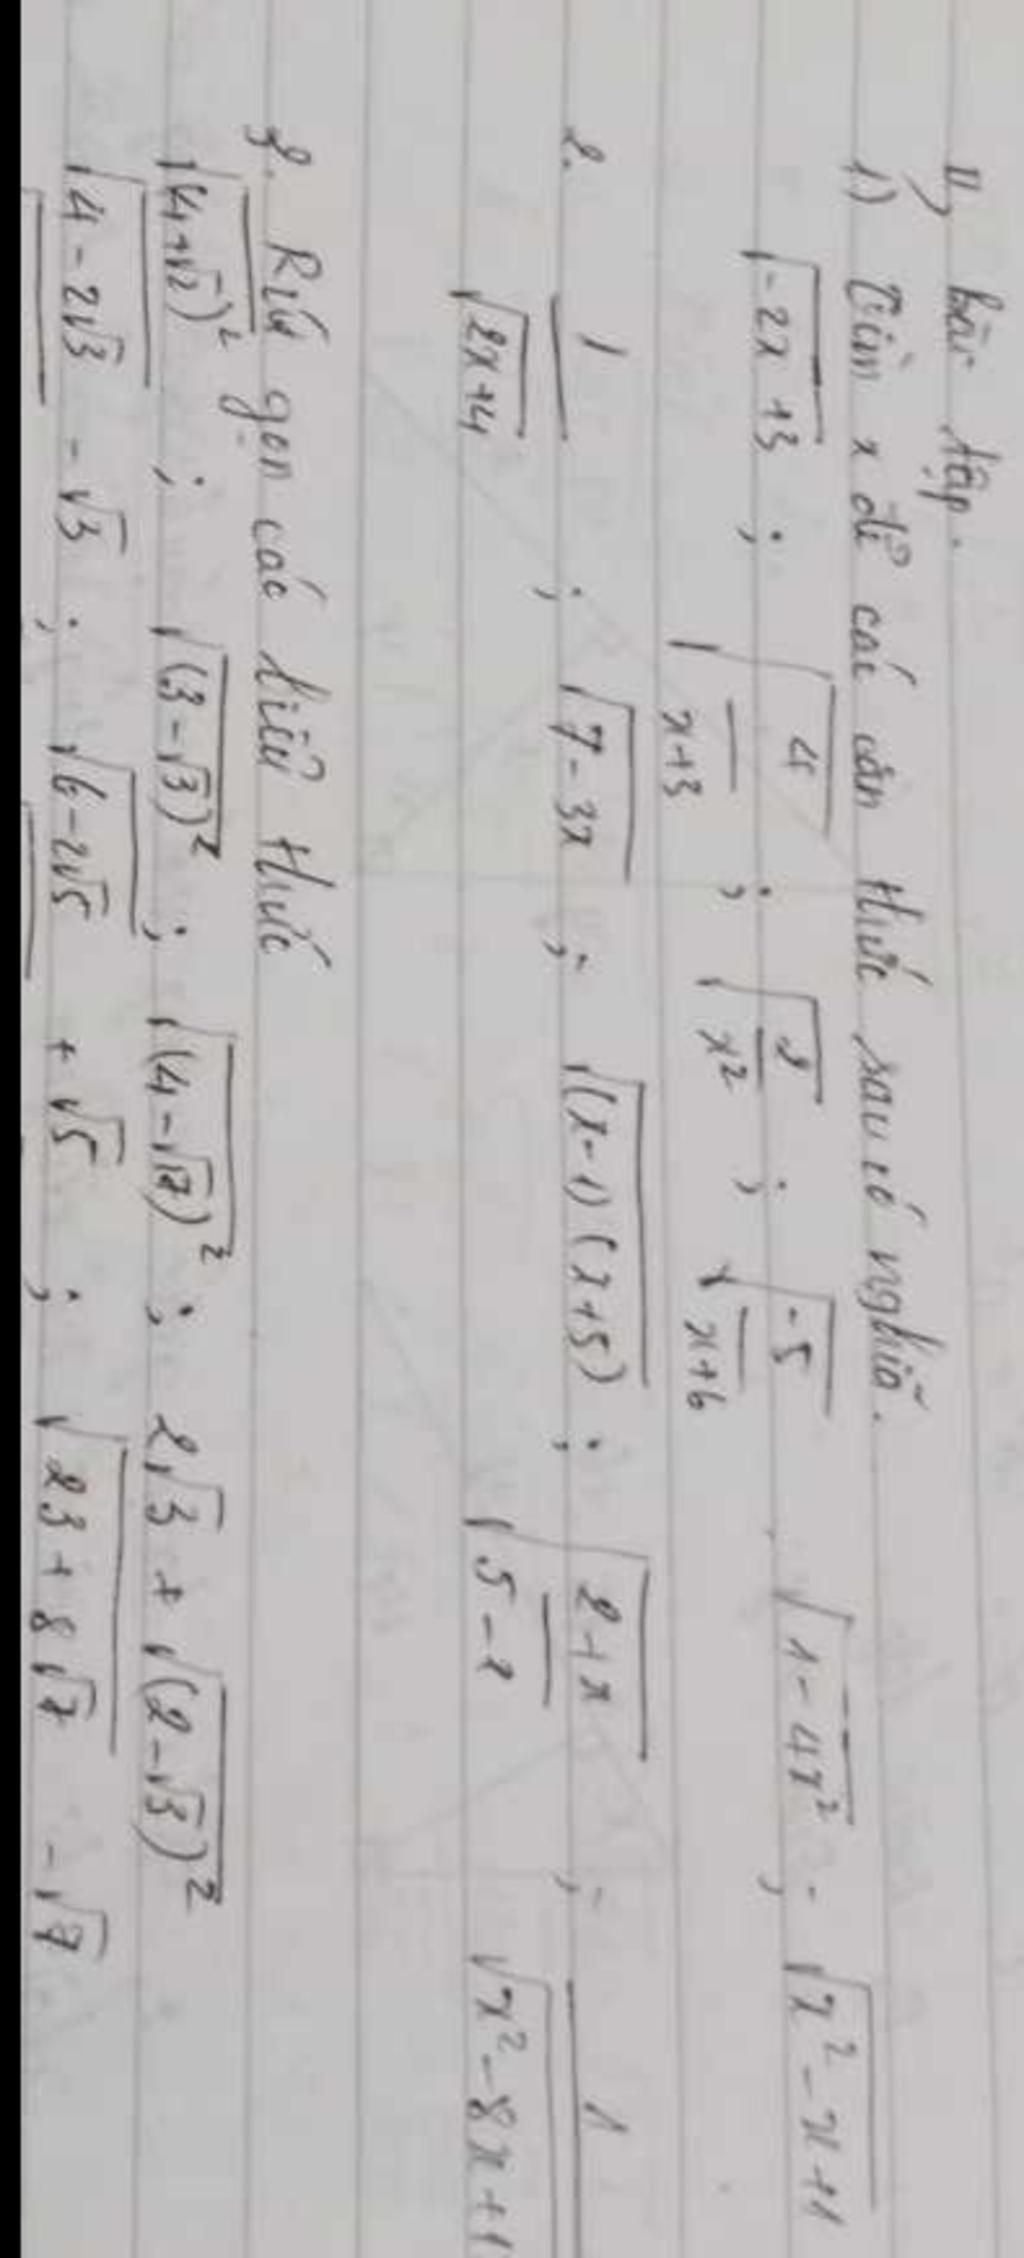 II) Bài tập.
1) Tìm x để các căn thức sau có nghĩa.
√(-2x+3) ; √(4/(x+3)) ; √(2/x²) ; √(-5/(x+6)) √(1-4x²) ; √(x²-x+1)
2. 1/√(2x+4) ; √(7-3x) ; √((x-1)(x+5)) ; √((2+x)/(5-x)) ; 1/√(x²-8x+1
3. Rút gọn các biểu thức
√((4+√2)²) ; √((3-√3)²) ; √((4-√17)²) ; 2√3 + √((2-√3)²)
√(4-2√3) - √3 ; √(6-2√5) + √5 ; √(23+8√7) - √7